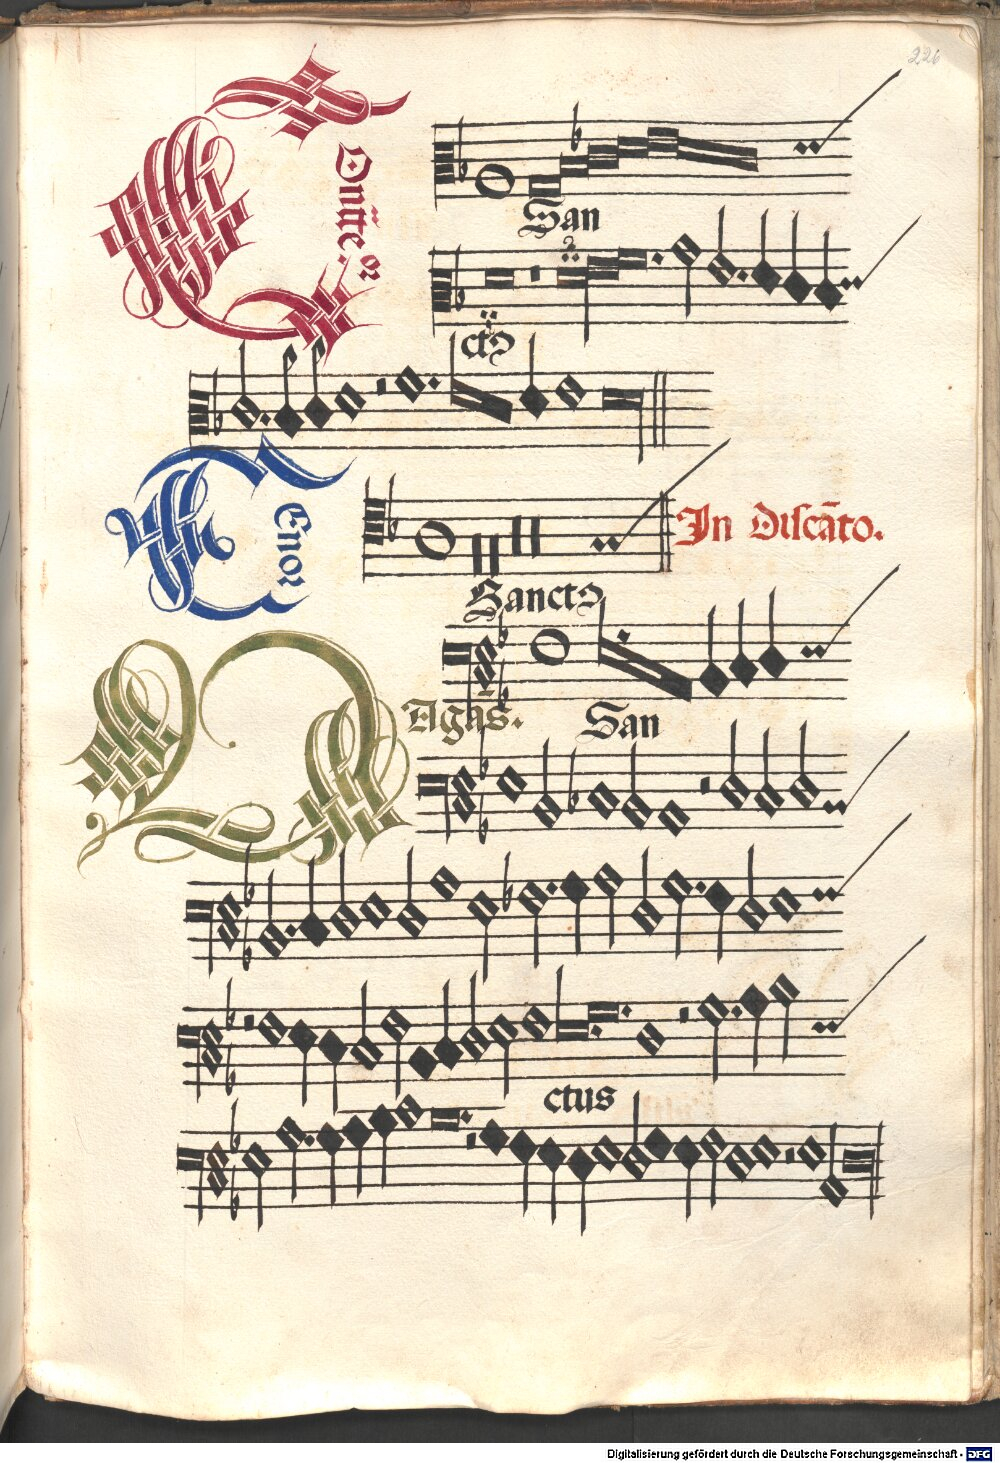 226
Contratenor
San
ctus
Tenor
In Discāto.
Sanctus
San
Vagās.
ctus
Digitalisierung gefördert durch die Deutsche Forschungsgemeinschaft - DFG